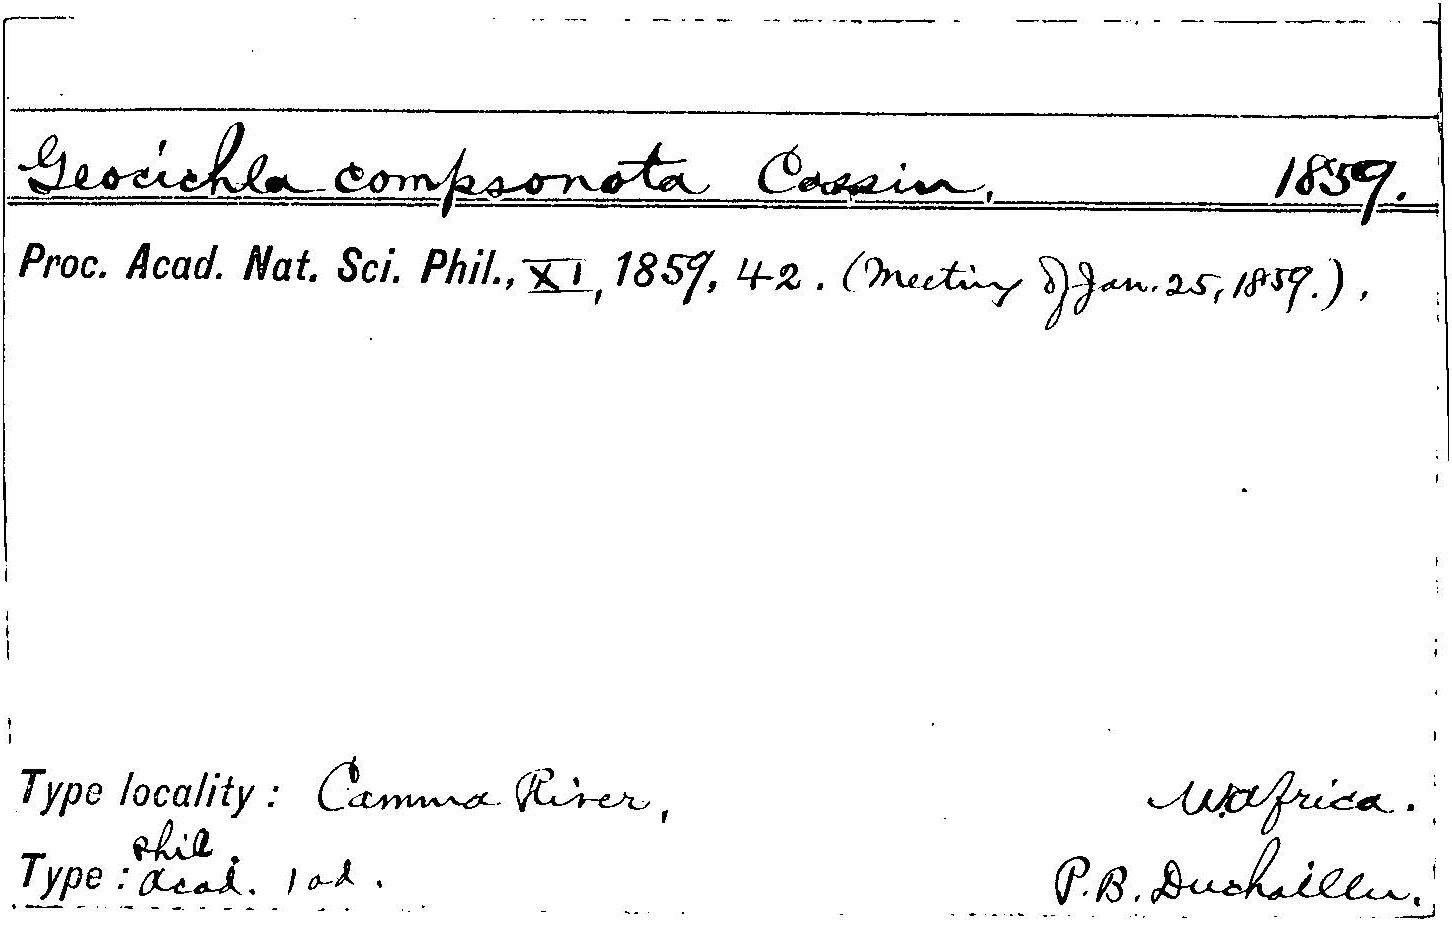 Geocichla compsonota Cassin, 1859.
Proc. Acad. Nat. Sci. Phil., XI, 1859, 42. (Meeting of Jan. 25, 1859.).
Type locality: Camma River, W. Africa.
Phil.
Type: Acad. 1 ad. P. B. Duchaillu.